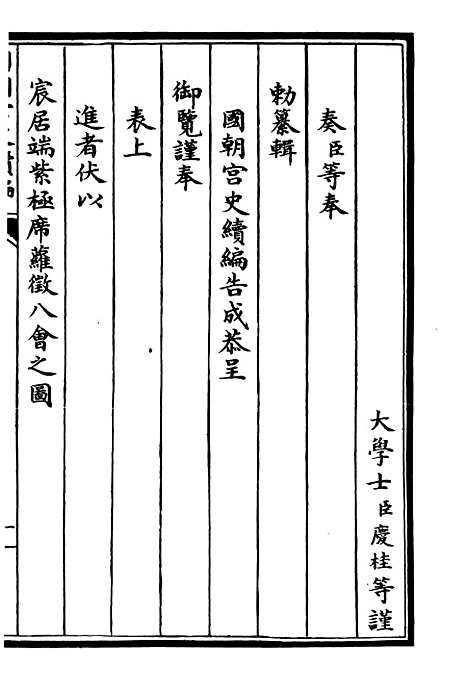 大學士臣慶桂等謹
奏臣等奉
勅纂輯
國朝宮史續編告成恭呈
御覽謹奉
表上
進者伏以
宸居端紫極席蘿徵八會之圖